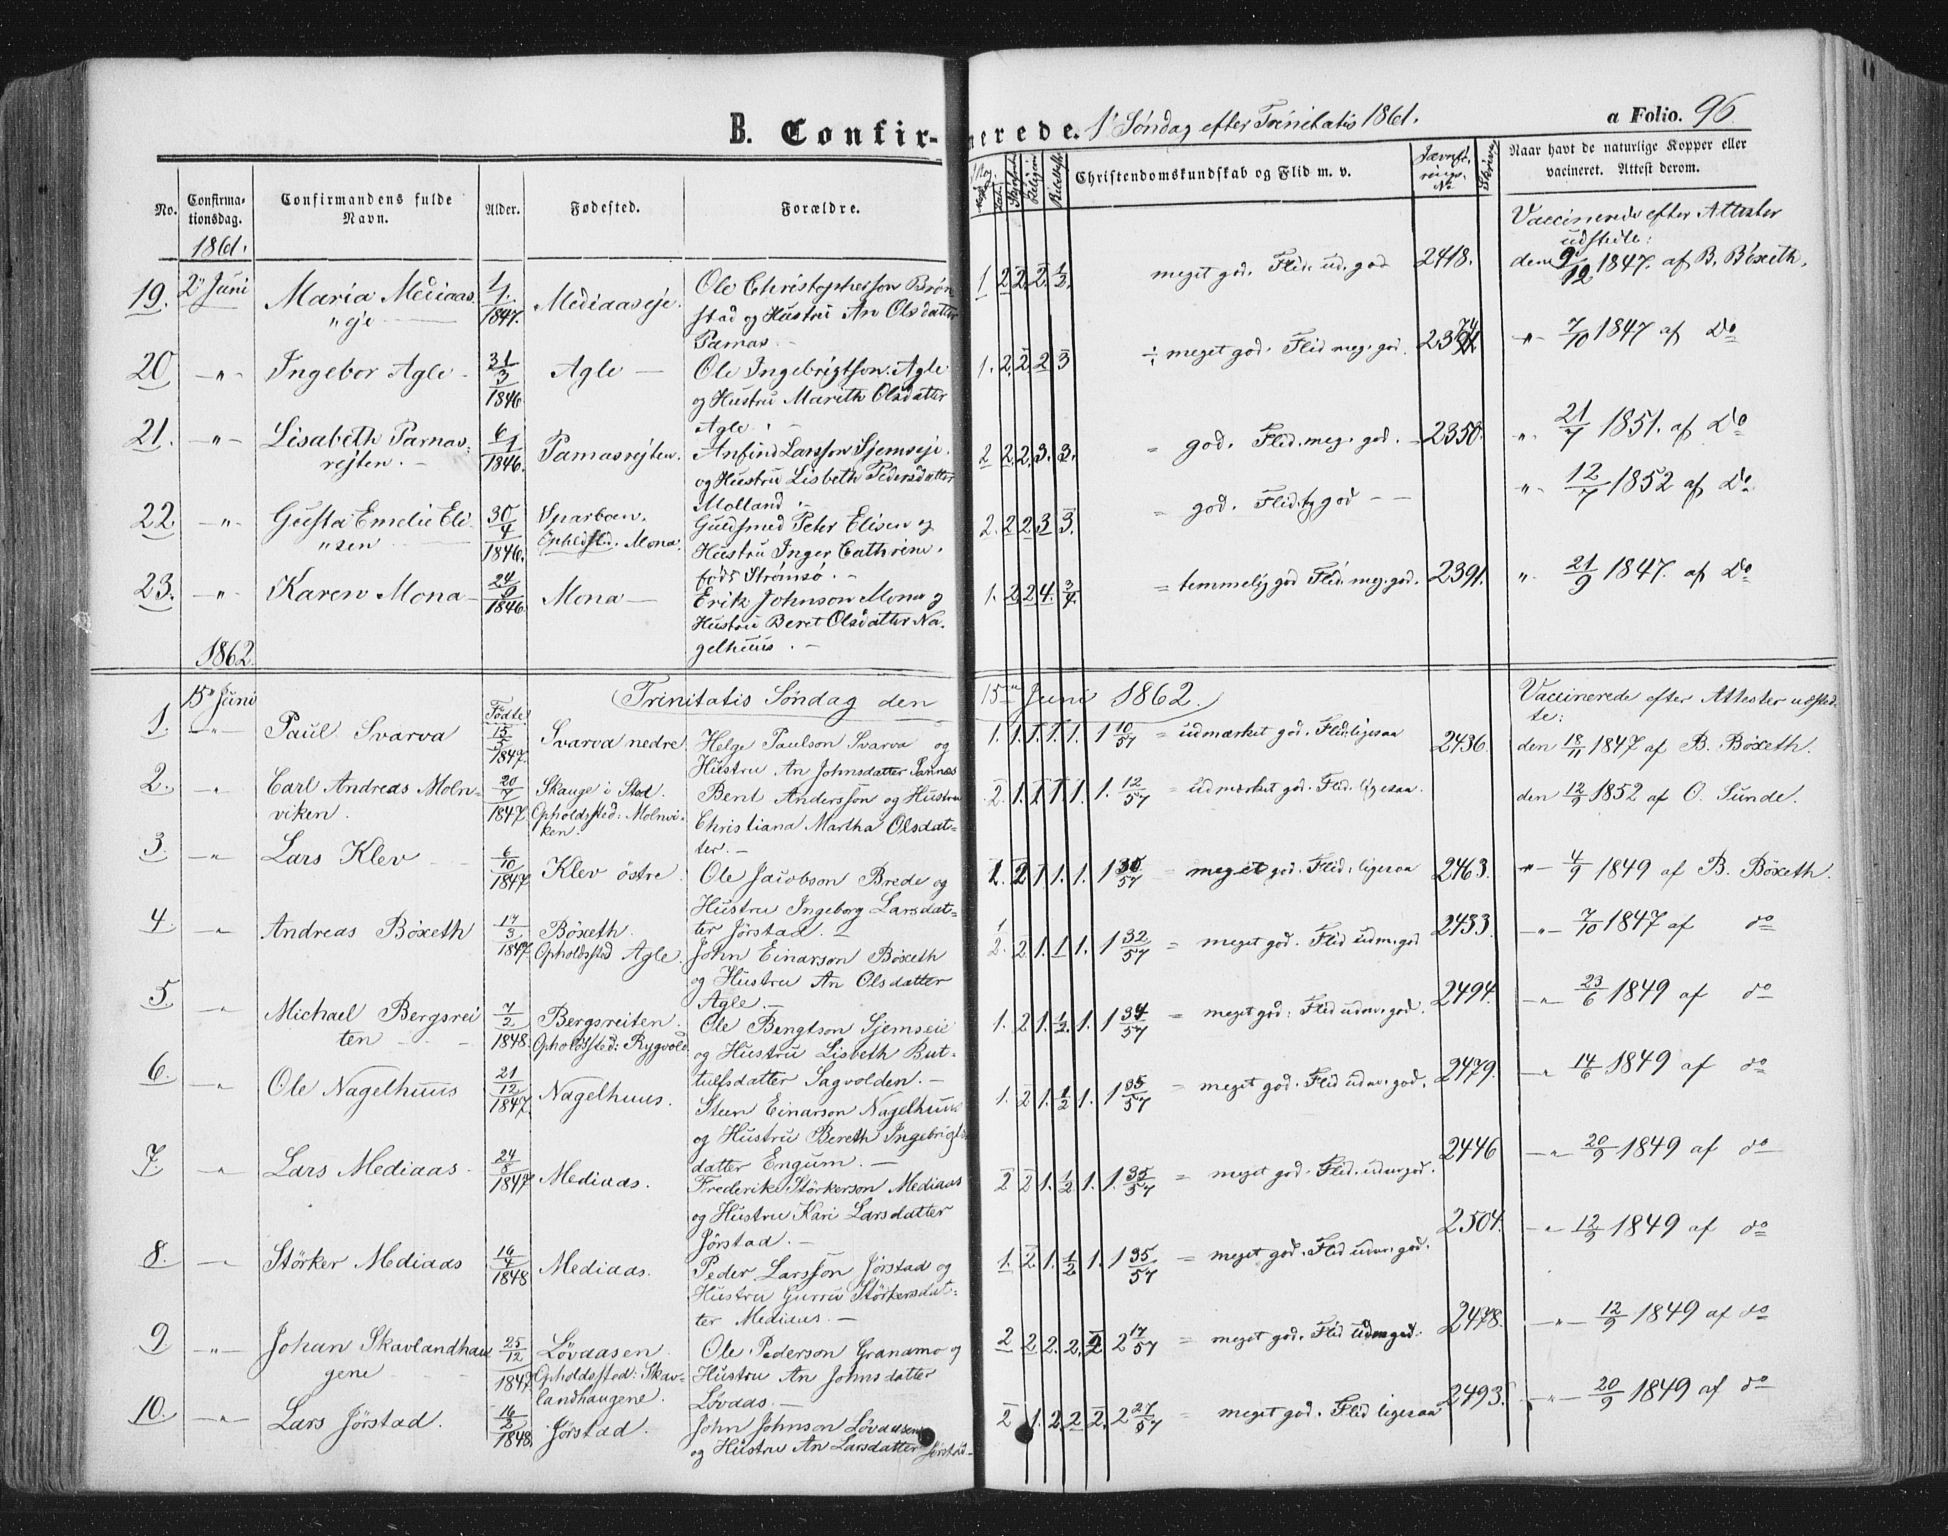 B. Confir- merede. 1' Søndag efter Trinitatis 1861. a Folio. 96
No. Confirma-tionsdag. Confirmandens fulde Navn. Alder. Fødested. Forældre. Christendomskundskab og Flid m. v. Jævnfø-rings-No. Naar havt de naturlige Kopper eller vacineret. Attest derom.
1861. Vaccinerede efter Attester
udstedte:
19. 2' Juni Maria Mediaas- 1/1 1847. Mediaaseje. Ole Christopherson Brøn- 1 2. 2. 2. 1/3. meget god. Flid ud. god 2418. den 9/12 1847. af B. Böxeth.
"eje stad og Hustru An Olsdatter
Parnas.
20 -"- Ingebor Agle 31/3 1846 Agle — Ole Ingebrigtson Agle 1. 2. 2 2 3 ÷ meget god. Flid meg. god. " 7/10 1847 af Do
og Hustru Marith Olsdatter
Agle.
21. -"- Lisabeth Parnas- 6/1 1846. Parnasrejten. Anfind Larsson Sjemseje 2 2. 2. 3. 3. = god. Flid. meg. god. 2350. " 21/7 1851. af Do
rejten. og Hustru Lisbeth Pedersdatter
Molland
22 -"- Gusta Emelie Eli- 30/4 1846. Sparboen. Guldsmed Peter Elisen og 2. 2 2 3 3. = god. Flid. tg god - - " 12/7 1852 af Do
"sen Opholdsted. Mona. Hustru Inger Cathrine,
født Strømsø.
23. -"- Karen Mona 24/9 1846. Mona — Erik Johnson Mona og 1. 2 2 4. 3/4. = temmelig god Flid. meg. god. 2391. " 21/9 1847. af Do
Hustru Beret Olsdatter Na-
gelhuus.
1862.
15' Juni Trinitatis Søndag den 15de Juni 1862. Vaccinerede efter Attester udsted-
te:
1. -"- Paul Svarva Fødte 15/5 1847. Svarva nedre Helge Paulson Svarva og 1. 1. 1. 1. 1. 1 10/57 = udmærket god. Flid: ligesaa 2436. den 18/11 1847 af B. Böxeth.
Hustru An Johnsdatter Parnas
2. -"- Carl Andreas Moln- 20/7 1847. Skauge i Stod. Bent Andersson og Hustru 2. 1. 1 1 1. 1. 12/57 = udmærket god. Flid. ligesaa. den 12/9 1852 af O. Sunde.
viken. Opholdsted: Molnvi- Christiana Martha Olsdat-
ken. ter.
3. -"- Lars Klev 6/10 1847 Klev østre. Ole Jacobson Brede og 1. 2 1 1. 1. 1 30/57 = meget god. Flid: ligesaa 2463. " 4/9 1849 af B. Böxeth.
Hustru Ingeborg Larsdat-
ter Jørstad.
4. -"- Andreas Böxeth 17/3 1847. Böxeth. John Einarson Böxeth 2. 2 1. 1 1. 1 32/57 = meget god. Flid udm. god 2433. -"- 7/10 1847 af do
Opholdsted Agle. og Hustru An Olsdatter
Agle.
5. -"- Michael Bergsrei- 7/2 1848. Bergsreiten. Ole Bengtson Sjemseie 1. 2 1. 1/2. 1. 1 34/57 = meget god: Flid udm. god. 2494. -"- 23/6 1849 af do
ten Opholdsted: Rygvold. og Hustru Lisbeth But-
tulfsdatter Sagvolden.
6. -"- Ole Nagelhuus 21/12 1847. Nagelhuus. Steen Einarson Nagelhuus 1. 2 1. 1/2 1. 1 35/57 = meget god. Flid udm. god. 2479. -"- 14/6 1849 af do
og Hustru Bereth Ingebrigts-
datter Engum.
7. -"- Lars Mediaas 24/8 1847 Mediaas. Frederik Störkerson Mediaas 2 2 1. 1/2 1. 1. 35/57 = meget god. Flid. udm. god. 2446 -"- 20/9 1849 af do
og Hustru Kari Larsdatter
Jørstad.
8. -"- Störker Mediaas 16/4 1848 Mediaas. Peder Larsson Jørstad og 1. 2 1. 1/2 1. 1 35/57 = meget god. Flid udm. god. 2504. -"- 12/9 1849 af do
Hustru Gurru Störkersdat-
ter Mediaas.
9 -"- Johan Skavlandhau- 25/12 1847 Løvdasen. Ole Pederson Granamo og 2 2 2. 2. 2 2 17/57 = meget god. Flid udm god. 2478. -"- 12/9 1849 af do
gene Opholdsted: Skav- Hustru An Johnsdatter
landhaugene. Løvdas.
10. -"- Lars Jørstad. 16/2 1848. Jørstad. John Johnson Løvdasen 2 1. 2 2 2. 2 27/57 = meget god. Flid ligesaa 2493. -"- 20/9 1849 af do
og Hustru An Larsdatter Jørstad